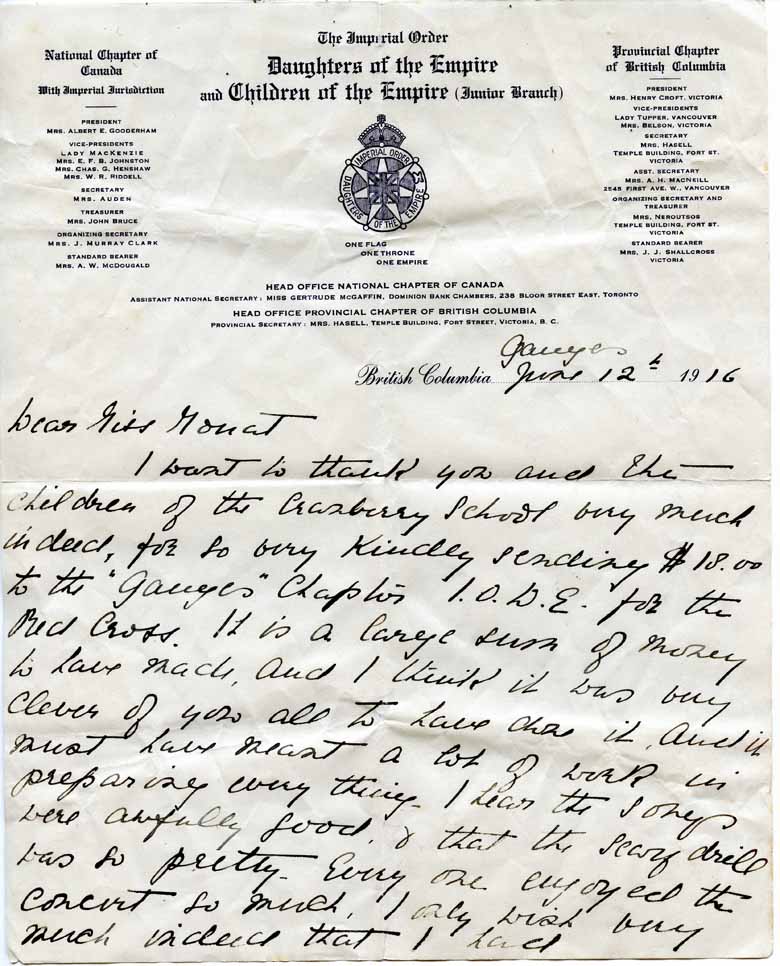 The Imperial Order
Daughters of the Empire
and Children of the Empire (Junior Branch)
National Chapter of
Canada
With Imperial Jurisdiction
PRESIDENT
MRS. ALBERT E. GOODERHAM
VICE-PRESIDENTS
LADY MACKENZIE
MRS. E. F. B. JOHNSTON
MRS. CHAS. G. HENSHAW
MRS. W. R. RIDDELL
SECRETARY
MRS. AUDEN
TREASURER
MRS. JOHN BRUCE
ORGANIZING SECRETARY
MRS. J. MURRAY CLARK
STANDARD BEARER
MRS. A. W. MCDOUGALD
IMPERIAL ORDER
DAUGHTERS OF THE EMPIRE
ONE FLAG
ONE THRONE
ONE EMPIRE
Provincial Chapter
of British Columbia
PRESIDENT
MRS. HENRY CROFT, VICTORIA
VICE-PRESIDENTS
LADY TUPPER, VANCOUVER
MRS. BELSON, VICTORIA
SECRETARY
MRS. HASELL
TEMPLE BUILDING, FORT ST.
VICTORIA
ASST. SECRETARY
MRS. A. H. MACNEILL
2545 FIRST AVE. W., VANCOUVER
ORGANIZING SECRETARY AND
TREASURER
MRS. NEROUTSOS
TEMPLE BUILDING, FORT ST.
VICTORIA
STANDARD BEARER
MRS. J. J. SHALLCROSS
VICTORIA
HEAD OFFICE NATIONAL CHAPTER OF CANADA
ASSISTANT NATIONAL SECRETARY: MISS GERTRUDE MCGAFFIN, DOMINION BANK CHAMBERS, 238 BLOOR STREET EAST, TORONTO
HEAD OFFICE PROVINCIAL CHAPTER OF BRITISH COLUMBIA
PROVINCIAL SECRETARY: MRS. HASELL, TEMPLE BUILDING, FORT STREET, VICTORIA, B. C.
Ganges
British Columbia June 12th 1916
Dear Miss Mouat
I want to thank you and the
children of the Cranberry School very much
indeed, for so very kindly sending $18.00
to the "Ganges" Chapter I.O.D.E. for the
Red Cross. It is a large sum of money
to have made, and I think it was very
clever of you all to have done it, and it
must have meant a lot of work in
preparing every thing. I hear the songs
were awfully good, & that the scarf drill
was so pretty. Every one enjoyed the
concert so much, I only wish very
much indeed that I had